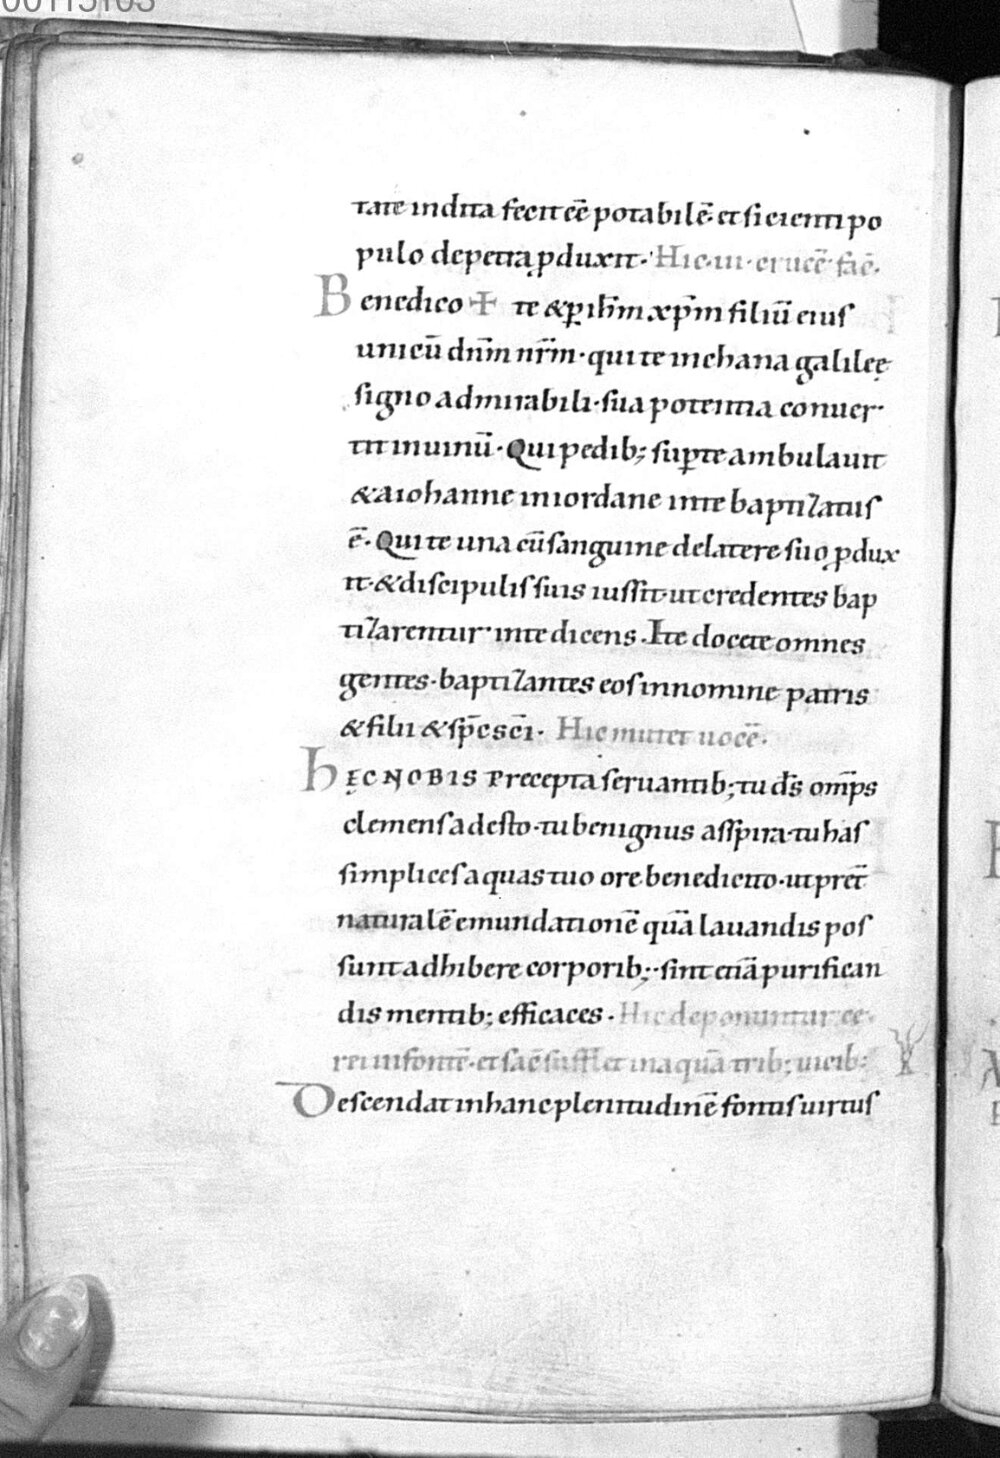 tate indita fecit eē potabilē· et sicienti po
pulo de petra ꝓduxit· Hic iii· crucē· faĉ·
Benedico ✠ te & ꝑ ih̄m xp̄m filiū eius
unicū dn̄m nr̄m· qui te in chana galileę
signo admirabili· sua potentia conuer·
tit in uinū· Qui pedib; suꝑ te ambulauit
& a iohanne in iordane in te baptizatus
ē· Qui te una cū sanguine de latere suo ꝓdux
it· & discipulis suis iussit· ut credentes bap
tizarentur in te dicens· Ite docete omnes
gentes· baptizantes eos in nomine patris
& filii & sp̄c sc̄i· Hic mutet uocē·
Hęc NOBIS precepta seruantib; tu dš om̄ps
clemens adesto· tu benignus asspira· tu has
simplices aquas tuo ore benedicito· ut pret̄
naturalē emundationē quā lauandis pos
sunt adhibere corporib;· sint etiā purifican
dis mentib; efficaces· Hic deponuntur ce·
rei in fontē· et saĉ sufflet in aquā trib; uicib:
Descendat in hanc plenitudinē fontis uirtus